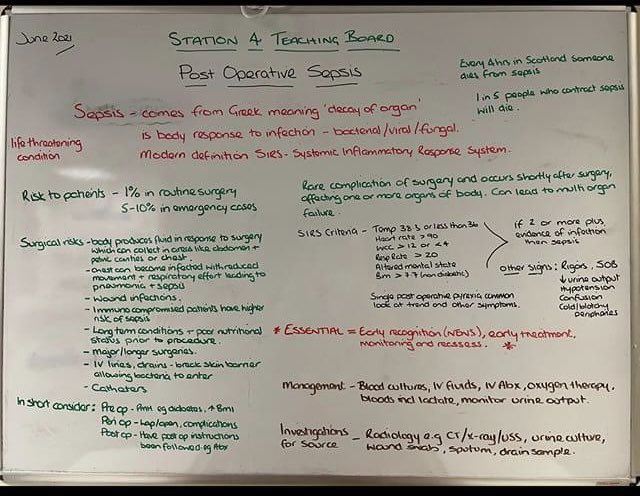 June 2021
STATION 4 TEACHING BOARD
Post Operative Sepsis
Every 4hrs in Scotland someone
dies from sepsis
1 in 5 people who contract sepsis
will die.
Sepsis - comes from Greek meaning 'decay of organ'
is body response to infection - bacterial/viral/fungal.
Modern definition SIRS - Systemic Inflammatory Response System.
life threatening
condition
Risk to patients - 1% in routine surgery
5-10% in emergency cases
Rare complication of surgery and occurs shortly after surgery,
affecting one or more organs of body. Can lead to multi organ
failure.
Surgical risks - body produces fluid in response to surgery
which can collect in areas like abdomen +
pelvic cavities or chest.
- chest can become infected with reduced
movement + respiratory effort leading to
pneumonia + sepsis
- Wound infections.
- Immuno compromised patients have higher
risk of sepsis
- Long term conditions + poor nutritional
status prior to procedure.
- Major/longer surgeries.
- IV lines, drains - break skin barrier
allowing bacteria to enter
- Catheters
In short consider: Pre op - PMH eg diabetes, ↑ BMI
Peri op - Lap/open, complications
Post op - Have post op instructions
been followed eg Abx
SIRS Criteria - Temp 38.5 or less than 36
Heart rate > 90
WCC > 12 or < 4
Resp Rate > 20
Altered mental state
BM > 7.7 (non diabetic)
if 2 or more plus
evidence of infection
then sepsis
Other signs: Rigors, SOB
↓ urine output
Hypotension
Confusion
Cold/blotchy
peripheries
Single post operative pyrexia common
look at trend and other symptoms.
* ESSENTIAL = Early recognition (NEWS), early treatment,
monitoring and reassess. *
Management - Blood cultures, IV fluids, IV Abx, oxygen therapy,
bloods incl lactate, monitor urine output.
Investigations - Radiology e.g CT/x-ray/USS, urine culture,
for source wound swab, sputum, drain sample.